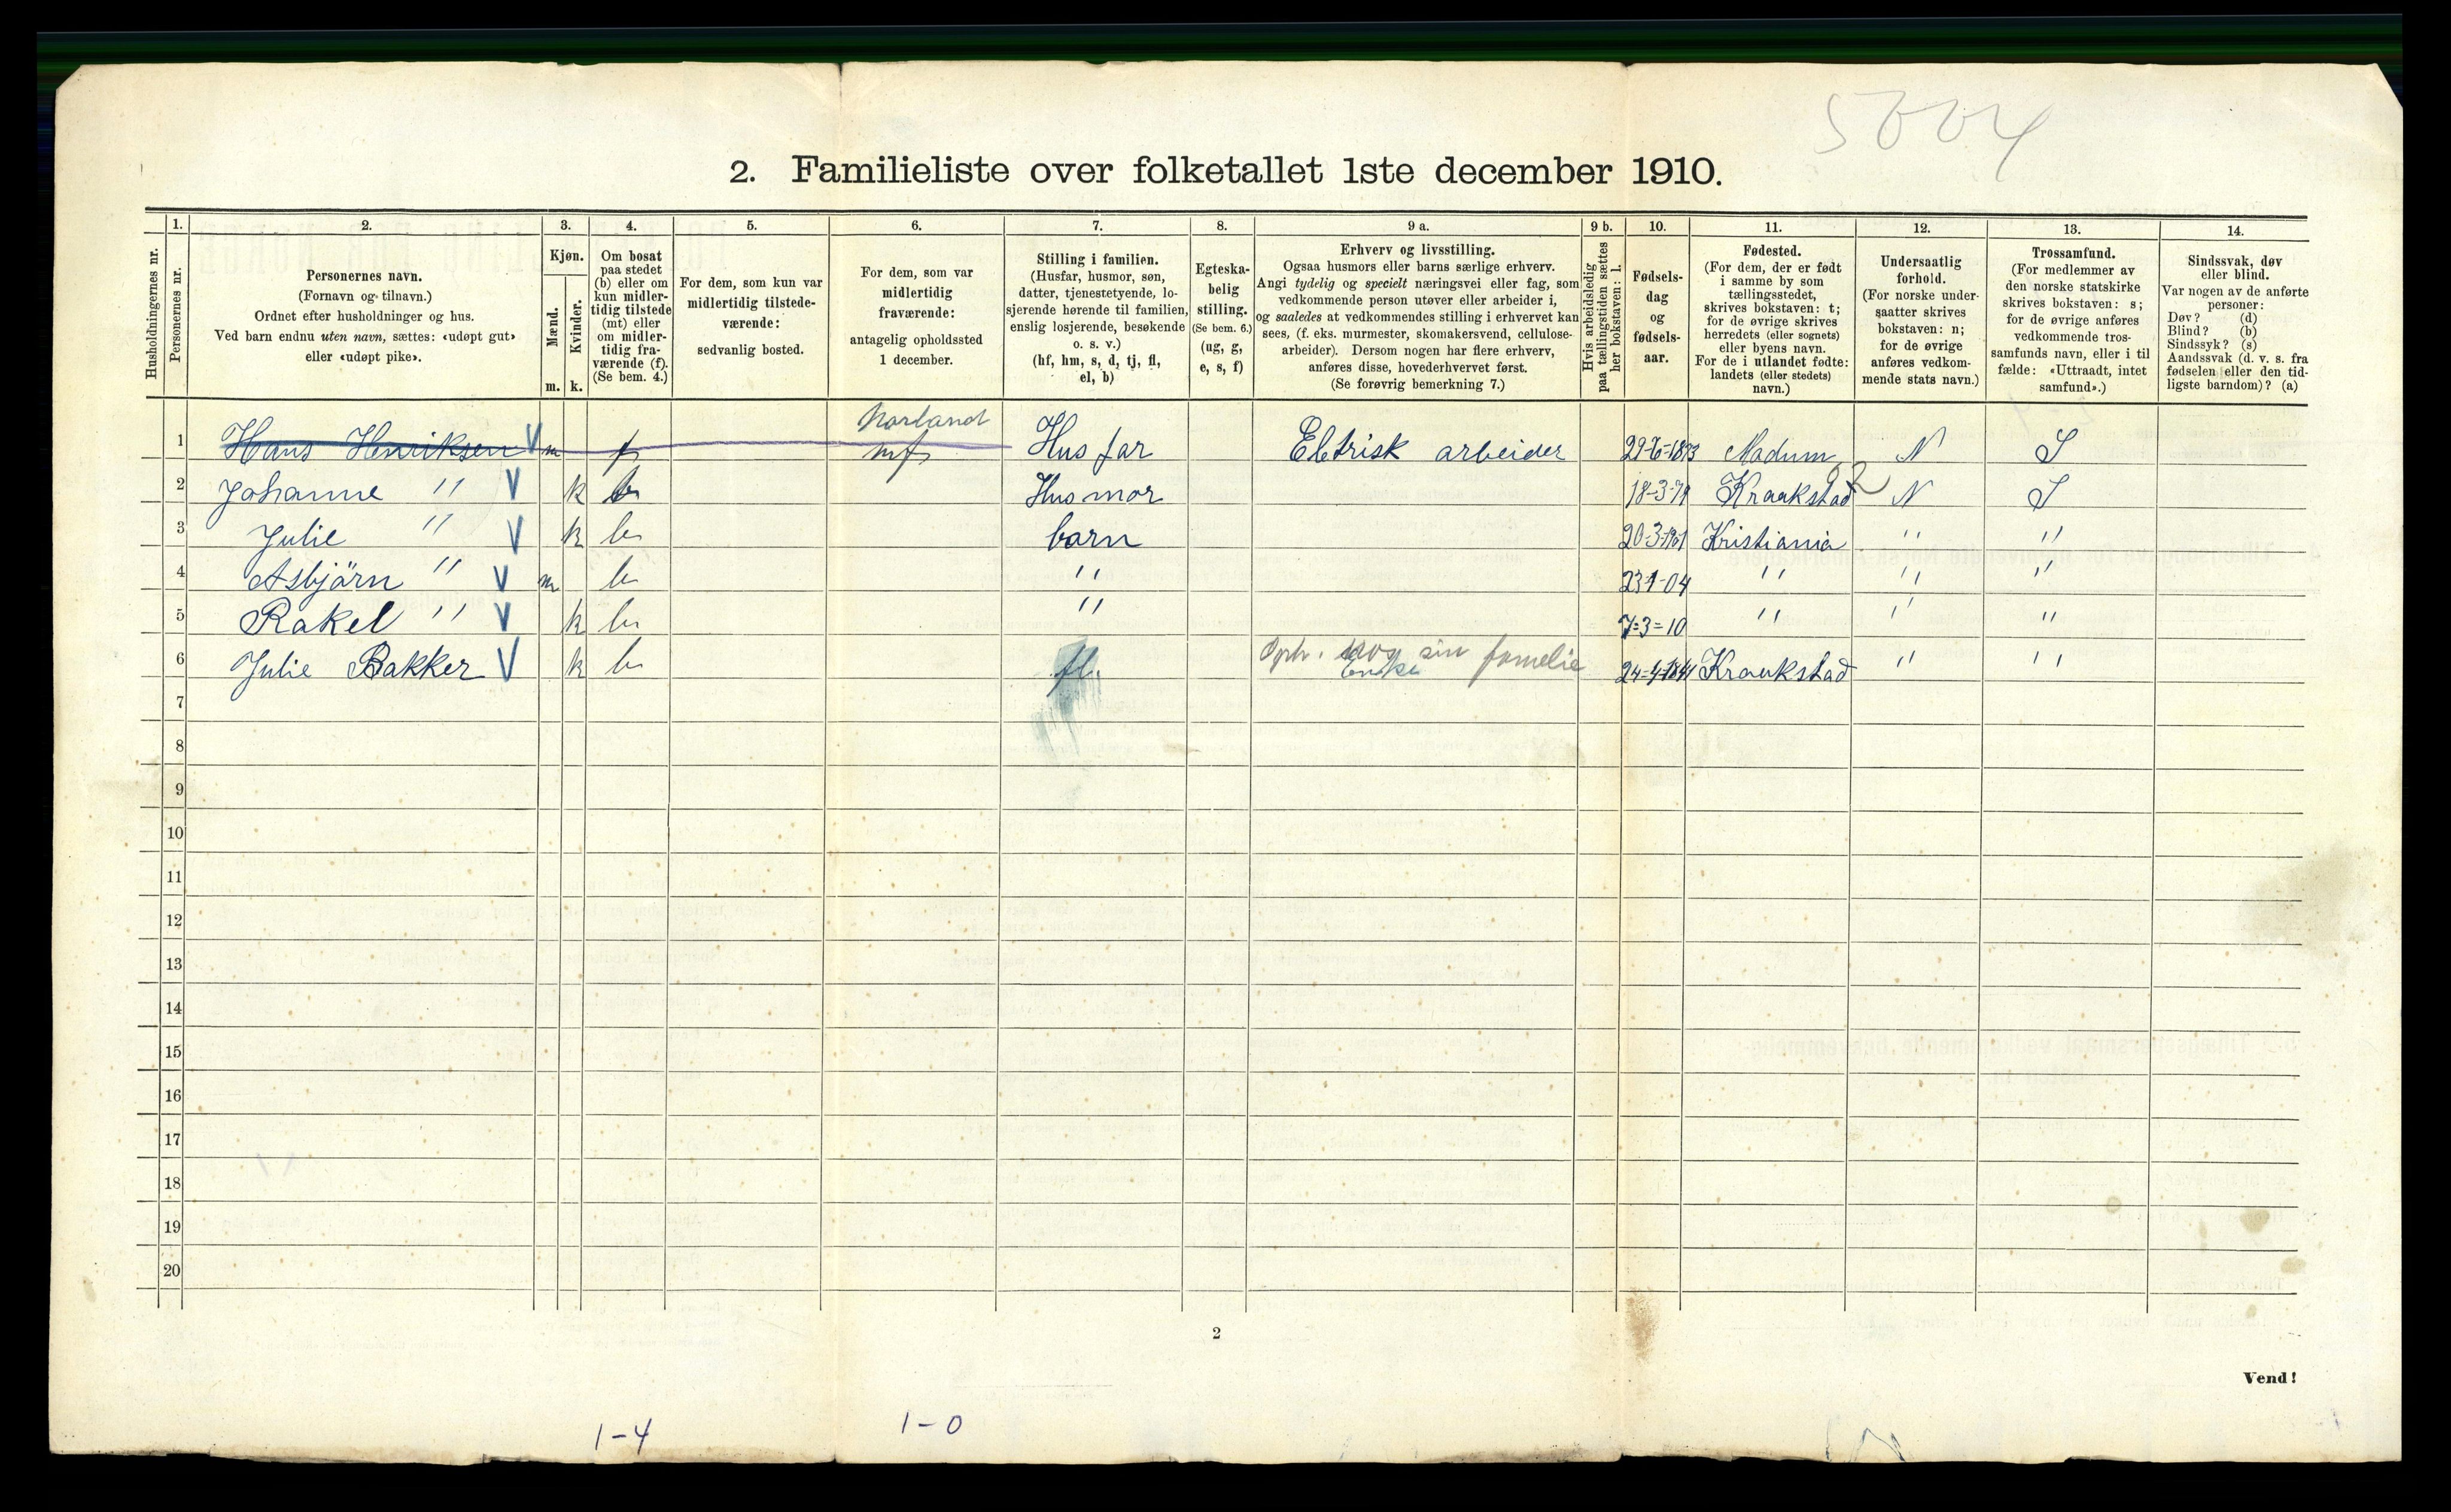 5004
2. Familieliste over folketallet 1ste december 1910.
Husholdningernes nr.
1.
Personernes nr.
2.
Personernes navn.
(Fornavn og tilnavn.)
Ordnet efter husholdninger og hus.
Ved barn endnu uten navn, sættes: «udøpt gut»
eller «udøpt pike».
3.
Kjøn.
Mænd.
m.
Kvinder.
k.
4.
Om bosat
paa stedet
(b) eller om
kun midler-
tidig tilstede
(mt) eller
om midler-
tidig fra-
værende (f).
(Se bem. 4.)
5.
For dem, som kun var
midlertidig tilstede-
værende:
sedvanlig bosted.
6.
For dem, som var
midlertidig
fraværende:
antagelig opholdssted
1 december.
7.
Stilling i familien.
(Husfar, husmor, søn,
datter, tjenestetyende, lo-
sjerende hørende til familien,
enslig losjerende, besøkende
o. s. v.)
(hf, hm, s, d, tj, fl,
el, b)
8.
Egteska-
belig
stilling.
(Se bem. 6.)
(ug, g,
e, s, f)
9 a.
Erhverv og livsstilling.
Ogsaa husmors eller barns særlige erhverv.
Angi tydelig og specielt næringsvei eller fag, som
vedkommende person utøver eller arbeider i,
og saaledes at vedkommendes stilling i erhvervet kan
sees, (f. eks. murmester, skomakersvend, cellulose-
arbeider). Dersom nogen har flere erhverv,
anføres disse, hovederhvervet først.
(Se forøvrig bemerkning 7.)
9 b.
Hvis arbeidsledig
paa tællingstiden sættes
her bokstaven: l.
10.
Fødsels-
dag
og
fødsels-
aar.
11.
Fødested.
(For dem, der er født
i samme by som
tællingsstedet,
skrives bokstaven: t;
for de øvrige skrives
herredets (eller sognets)
eller byens navn.
For de i utlandet fødte:
landets (eller stedets)
navn.)
12.
Undersaatlig
forhold.
(For norske under-
saatter skrives
bokstaven: n;
for de øvrige
anføres vedkom-
mende stats navn.)
13.
Trossamfund.
(For medlemmer av
den norske statskirke
skrives bokstaven: s;
for de øvrige anføres
vedkommende tros-
samfunds navn, eller i til
fælde: «Uttraadt, intet
samfund».)
14.
Sindssvak, døv
eller blind.
Var nogen av de anførte
personer:
Døv? (d)
Blind? (b)
Sindssyk? (s)
Aandssvak (d. v. s. fra
fødselen eller den tid-
ligste barndom)? (a)
Norland
1 Hans Henriksen V m f mf Hus far Eletrisk arbeider 29-6-1873 Modum N S
2 Johanne " V k b Hus mor 18-3-79 Kraakstad N S
3 Julie " V k b barn 20-3-1901 Kristiania " "
4 Asbjörn " V m b " 23-1-04 " " "
5 Rakel " V k b " 7=3=10 " " "
6 Julie Bakker V k b fl. sin famelie Enke 24=4-1841 Kraakstad " "
7
8
9
10
11
12
13
14
15
16
17
18
19
20
2
Vend!
1-4 1-0